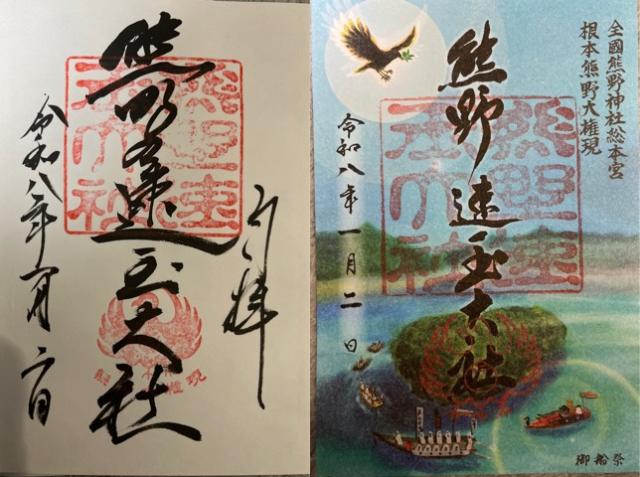 奉拝
熊野速玉大社
令和八年一月二日
熊野速玉大社
全國熊野神社総本宮
根本熊野大権現
熊野速玉大社
令和八年一月二日
熊野速玉大社
御船祭